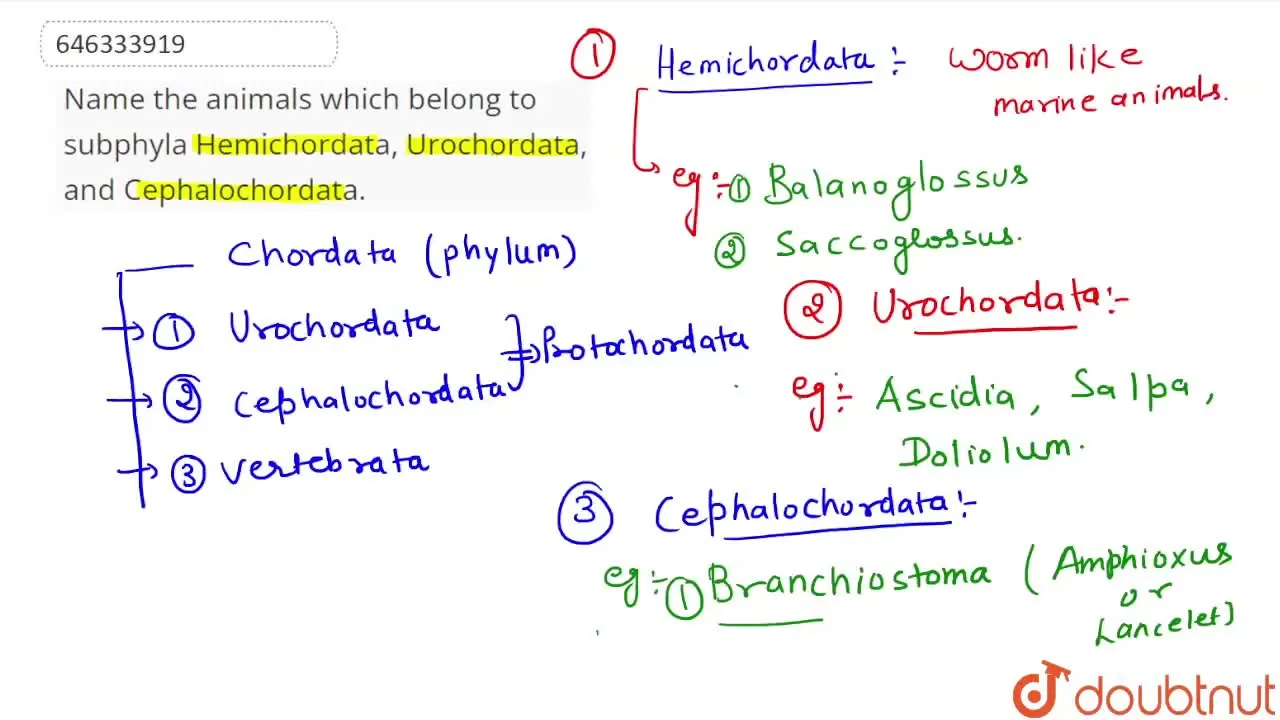 646333919
Name the animals which belong to
subphyla Hemichordata, Urochordata,
and Cephalochordata.
Chordata (phylum)
① Urochordata
② Cephalochordata
⇒ Protochordata
③ Vertebrata
① Hemichordata :- worm like
marine animals.
eg :- ① Balanoglossus
② Saccoglossus.
② Urochordata :-
eg :- Ascidia, Salpa,
Doliolum.
③ Cephalochordata :-
eg :- ① Branchiostoma (Amphioxus
or
Lancelet)
doubtnut